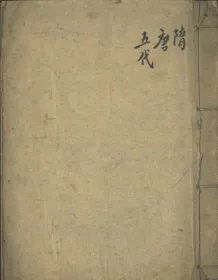 隋
唐
五代